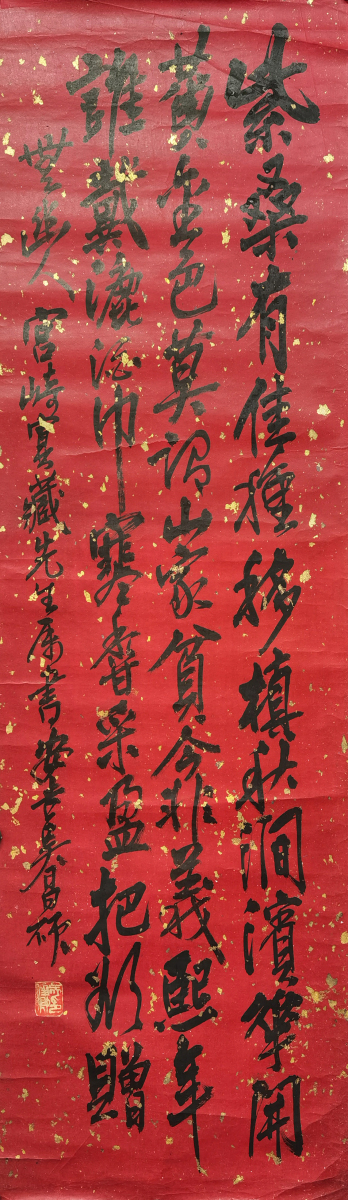 柴桑有佳種移植秋澗濱華開
黃金色莫謂山家貧今非義熙年
誰戴漉酒巾寒香采盈把贈
無人 宮崎寅藏先生屬書安吉吳昌碩